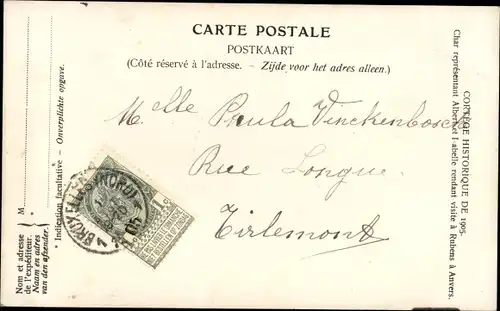 CARTE POSTALE
POSTKAART
(Côté réservé à l'adresse. – Zijde voor het adres alleen.)
Melle Paula Vinckenbosch
Rue Longue
Tirlemont
BRUXELLES (NORD)
CORTÈGE HISTORIQUE DE 1905.
Char représentant Albert et Isabelle rendant visite à Rubens à Anvers.
* Indication facultative – Onverplichte opgave.
M
Nom et adresse
de l'expéditeur.
Naam en adres
van den afzender.